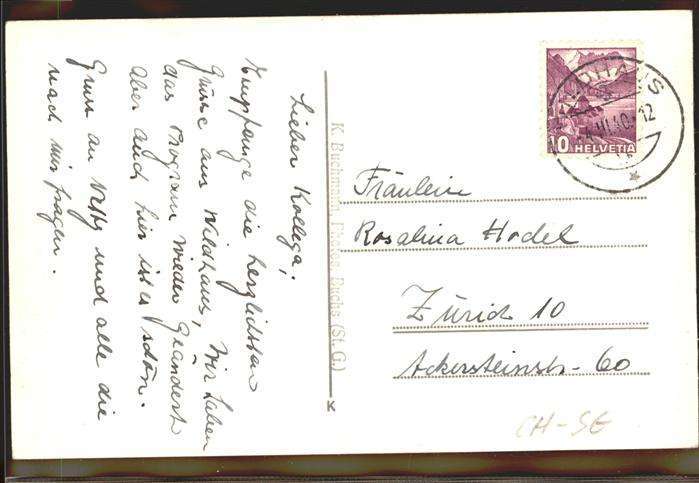 Lieber Kollega,
Empfange die herzlichsten
Grüsse aus Wildhaus, Wir haben
das Program wieder geändert
Aber auch hier ist es schön.
Gruss an und alle die
nach mir fragen.
K. Buchmann, Photos, Buchs (St. G.)
K
10 HELVETIA
WILDHAUS
12
Fräulein
Rosalina Hodel
Zürich 10
Ackersteinstr. 60
CH-SG